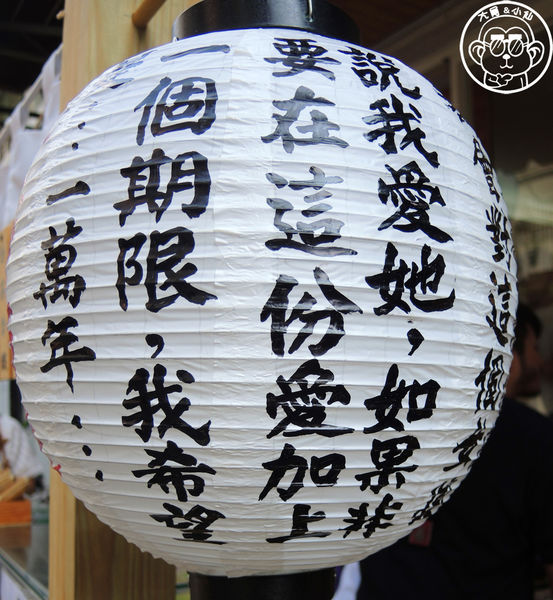 會對這個女孩
說我愛她，如果非
要在這份愛加上
一個期限，我希望
‥一萬年‥